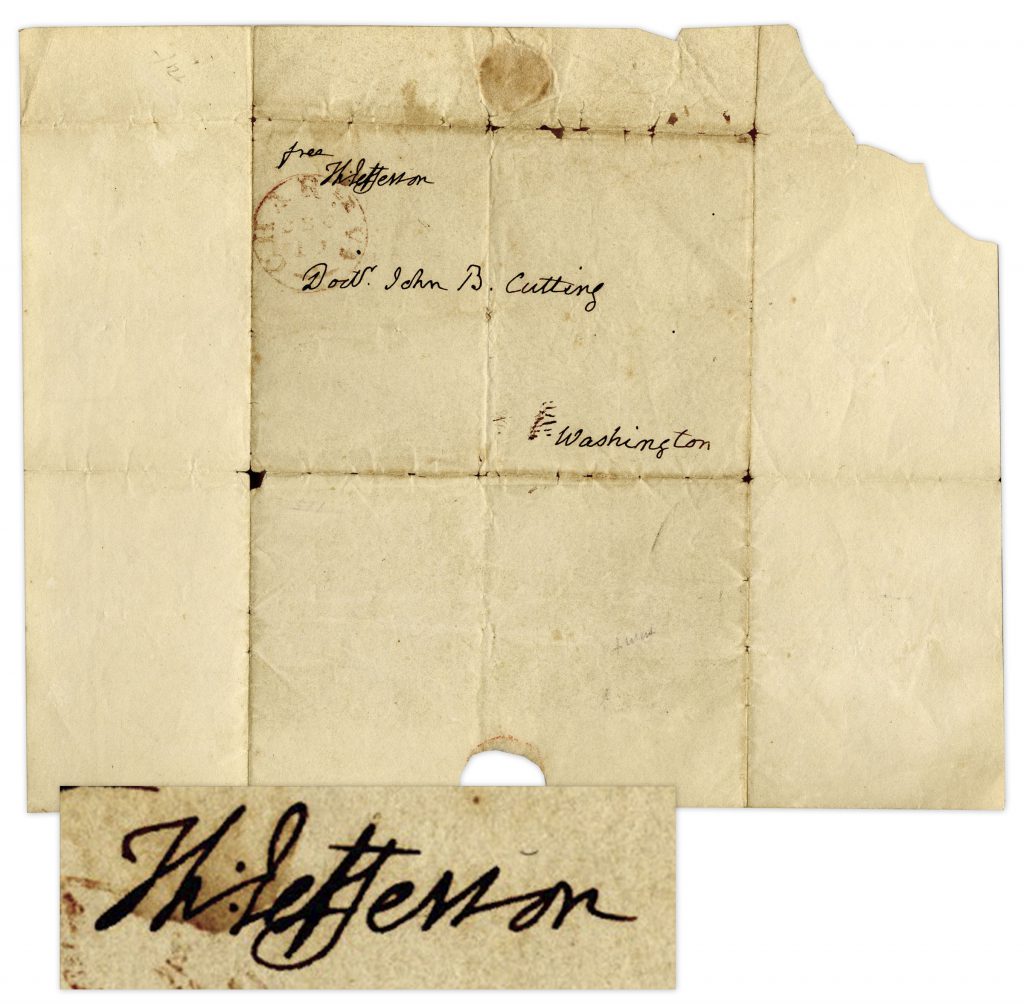 free
Th: Jefferson
Doctr. John B. Cutting
Washington
Th: Jefferson